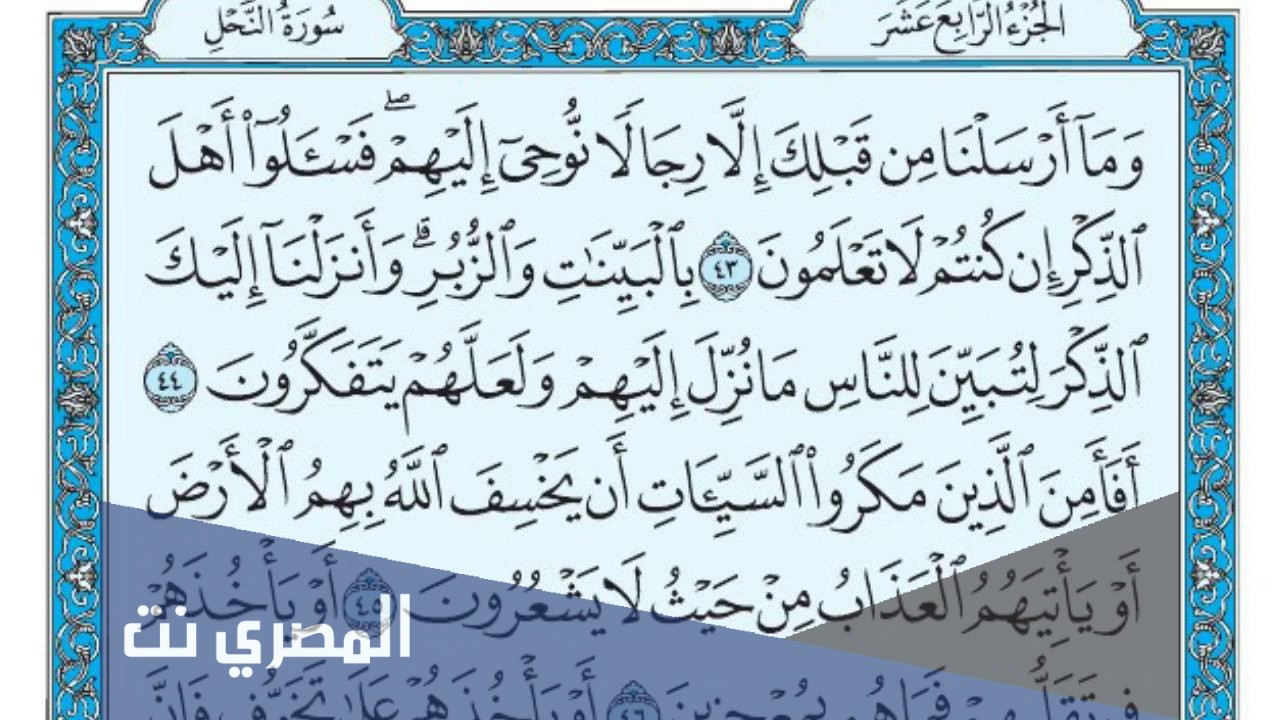 الجُزْءُ الرَّابِعَ عَشَرَ
سُورَةُ النَّحْلِ
وَمَآ أَرْسَلْنَا مِن قَبْلِكَ إِلَّا رِجَالًا نُّوحِىٓ إِلَيْهِمْۖ فَسْـَٔلُوٓا۟ أَهْلَ
ٱلذِّكْرِ إِن كُنتُمْ لَا تَعْلَمُونَ ٤٣ بِٱلْبَيِّنَٰتِ وَٱلزُّبُرِۗ وَأَنزَلْنَآ إِلَيْكَ
ٱلذِّكْرَ لِتُبَيِّنَ لِلنَّاسِ مَا نُزِّلَ إِلَيْهِمْ وَلَعَلَّهُمْ يَتَفَكَّرُونَ ٤٤
أَفَأَمِنَ ٱلَّذِينَ مَكَرُوا۟ ٱلسَّيِّـَٔاتِ أَن يَخْسِفَ ٱللَّهُ بِهِمُ ٱلْأَرْضَ
أَوْ يَأْتِيَهُمُ ٱلْعَذَابُ مِنْ حَيْثُ لَا يَشْعُرُونَ ٤٥ أَوْ يَأْخُذَهُمْ
فِى تَقَلُّبِهِمْ فَمَا هُم بِمُعْجِزِينَ ٤٦ أَوْ يَأْخُذَهُمْ عَلَىٰ تَخَوُّفٍ فَإِنَّ
المصري نت